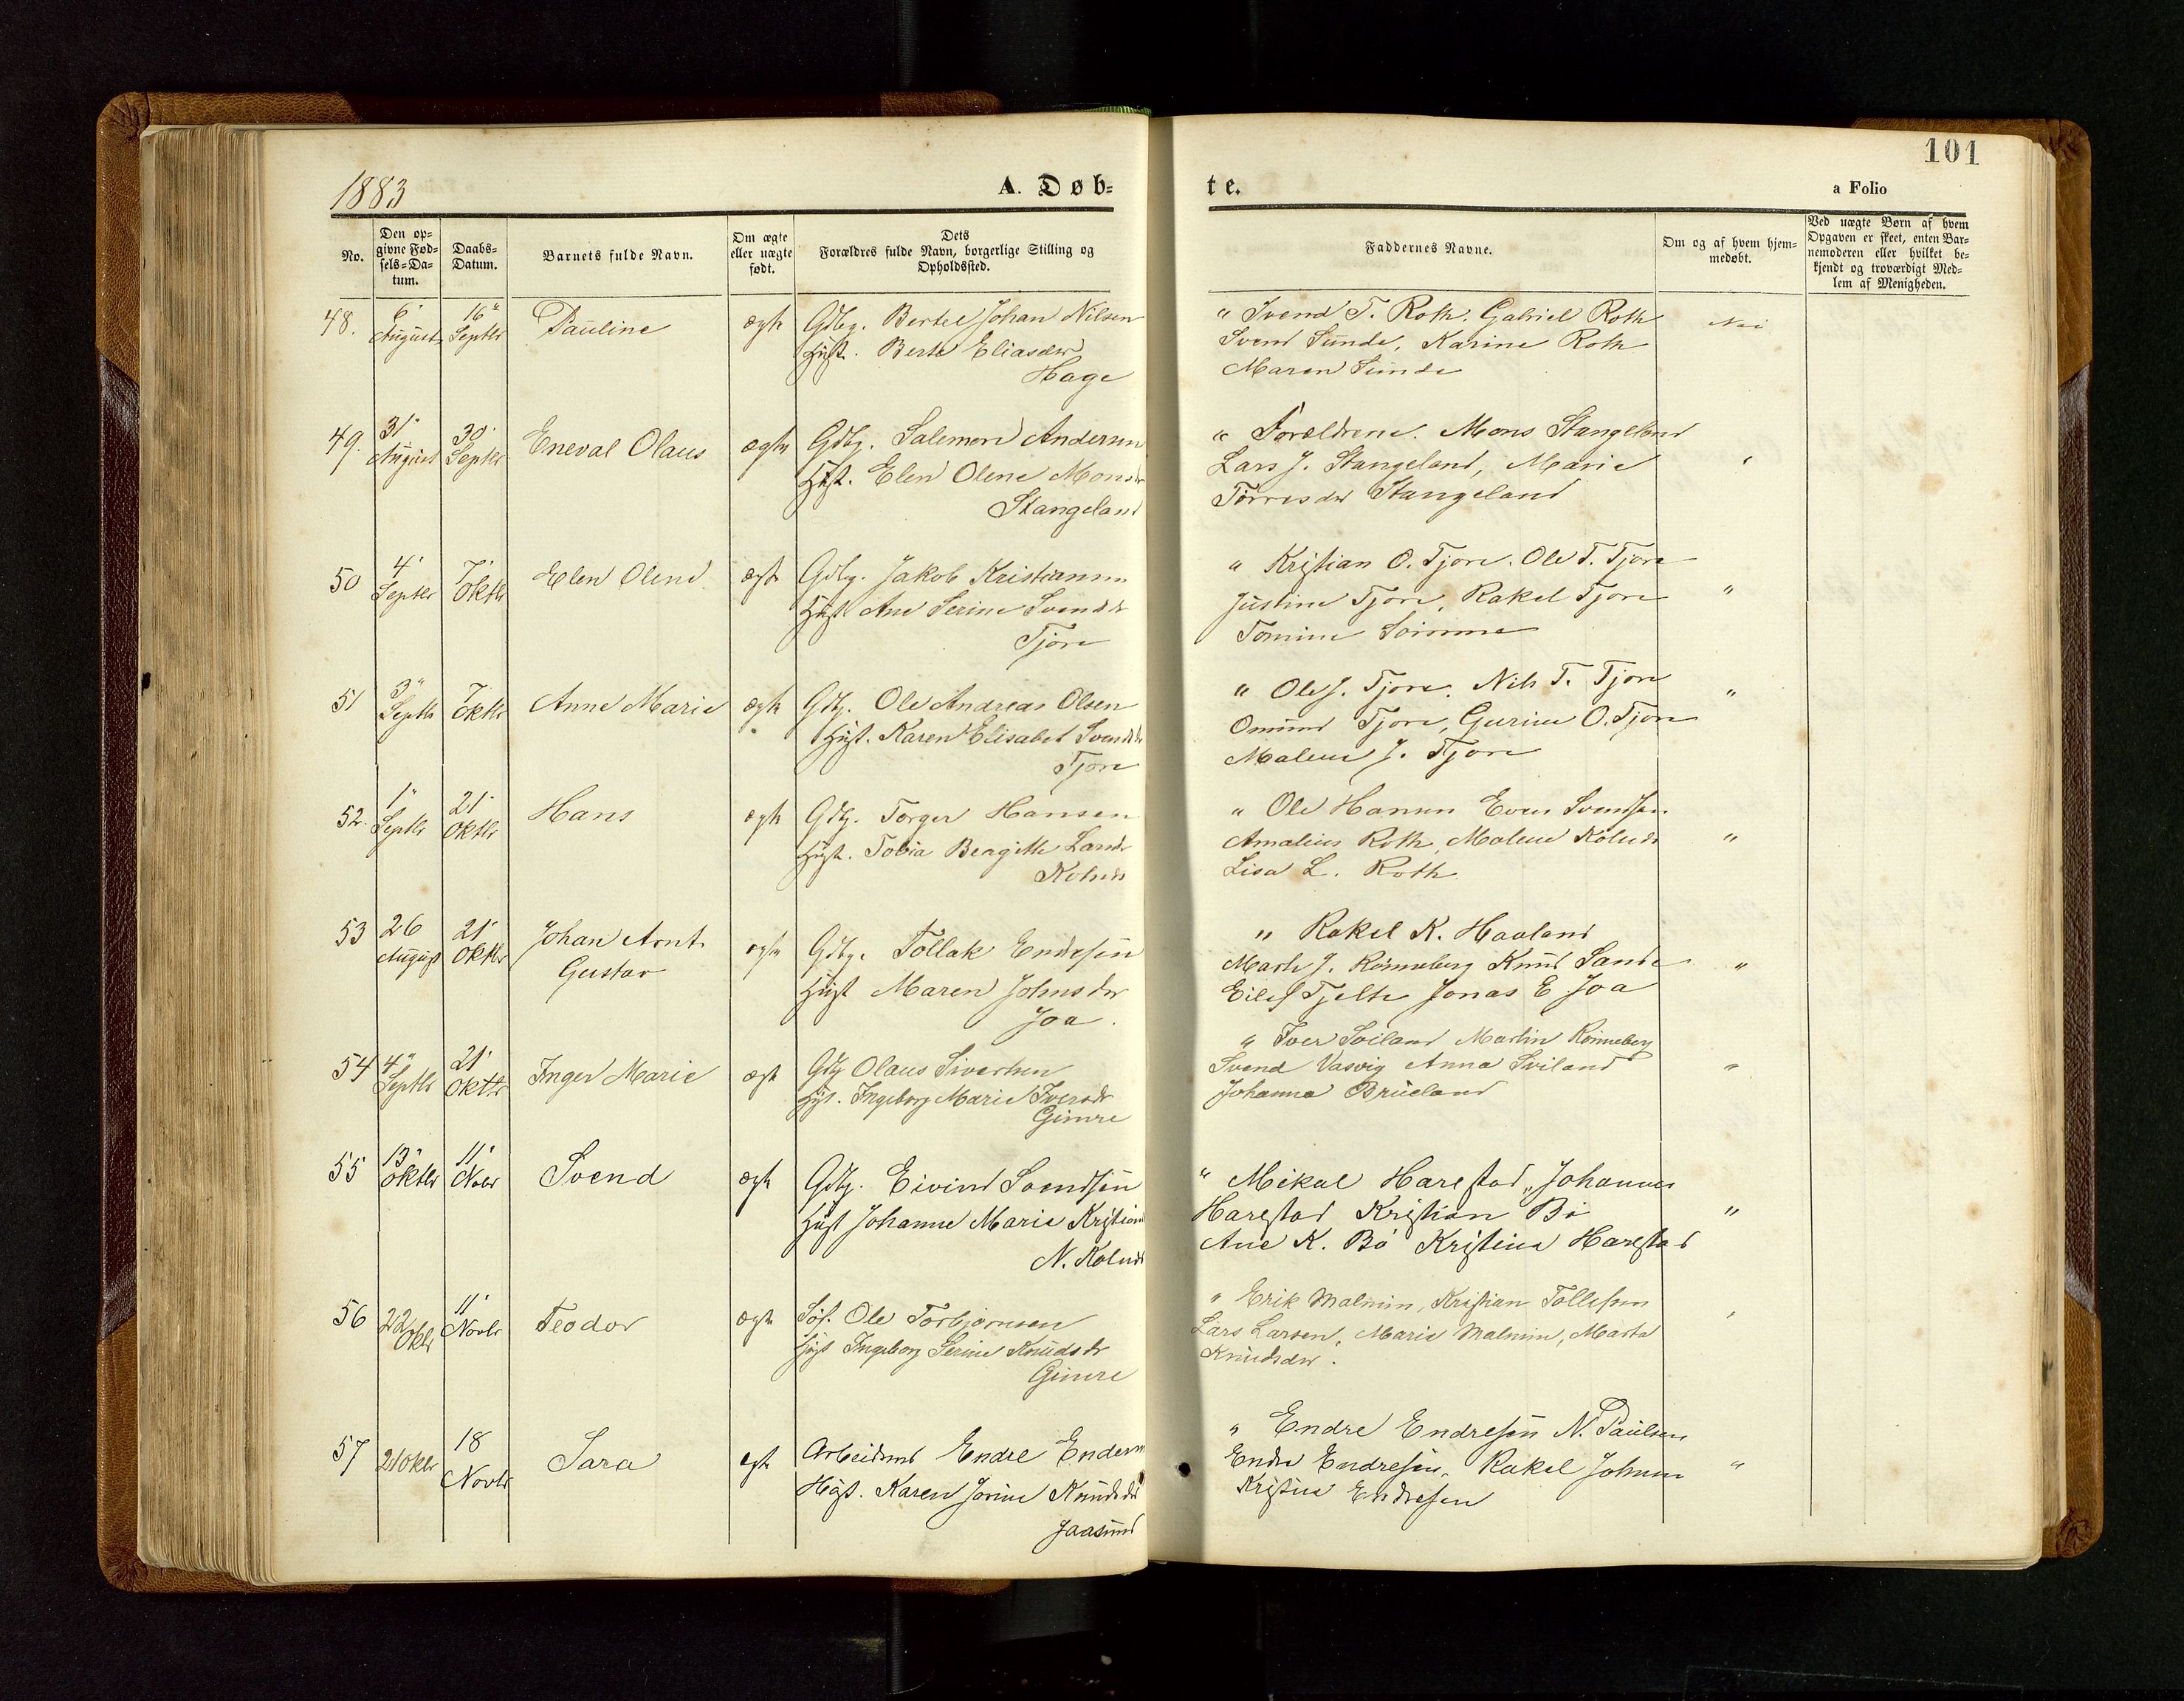 101
1883
A. Døb-
te.
a Folio
No.
Den op-
givne Fød-
sels-Da-
tum.
Daabs-
Datum.
Barnets fulde Navn.
Om ægte
eller uægte
født.
Dets
Forældres fulde Navn, borgerlige Stilling og
Opholdssted.
Faddernes Navne.
Om og af hvem hjem-
medøbt.
Ved uægte Børn af hvem
Opgaven er skeet, enten Bar-
nemoderen eller hvilket be-
kjendt og troværdigt Med-
lem af Menigheden.
48. 6" August 16" Septbr Pauline ægte Gdbg. Bertel Johan Nilsen
Hust. Berte Eliasdtr
Hage
" Svend T. Roth. Gabriel Roth
Svend Sunde, Karine Roth
Maren Sunde
Nei
49. 31" August 30" Septbr Eneval Olaus ægte Gdbg. Salemon Andersen
Hust. Elen Olene Monsdr
Stangeland
" Forældrene. Mons Stangeland
Lars J. Stangeland, Marie
Torresdtr Stangeland
"
50 4" Septbr 7" Oktbr Elen Oline ægte Gdbg. Jakob Kristiansen
Hust Ane Serine Svendsdr
Tjore
" Kristian O. Tjore. Ole T. Tjore
Justine Tjore, Rakel Tjore
Tomine Sømme
"
51 3" Septbr 7 Oktbr Anne Marie ægte Gdbg. Ole Andreas Olsen
Hust. Karen Elisabet Svendsdr
Tjore
" Ole J. Tjore. Nils T. Tjore
Omund Tjore, Gurine O. Tjore
Malene J. Tjore
"
52. 1" Septbr 21" Oktbr Hans ægte Gdbg. Torger Hansen
Hust. Tobia Bergitte Larsdr
Kolnes
" Ole Hansen Even Svendsen
Amalius Roth, Malene Kolnes
Lisa L. Roth
"
53 26 August 21" Oktbr Johan Arnt
Gustav
ægte Gdbg. Tollak Endresen
Hust Maren Johnsdtr
Joa.
" Rakel K. Haaland
Marte J. Rønneberg Knud Sande
Eilef Tjelte Jonas E Joa
"
54 4" Septbr 21" Oktbr Inger Marie ægte Gdbg Olaus Sivertsen
Hust. Ingeborg Marie Iversdtr
Gimre
" Iver Sviland Martin Rønneberg
Svend Vasvig Anna Sviland
Johanna Brueland
"
55 13" Oktbr 11" Novbr Svend ægte Gdbg. Eivind Svendsen
Hust Johanne Marie Kristians
N. Kolnes
" Mikal Harestad, Johannes
Harestad Kristian Bø
Ane K. Bø Kristina Harestad
"
56 22 Oktbr 11" Novbr Teodor ægte Ole Torbjørnsen
Hust Ingeborg Serine Knudsdtr
Gimre
" Erik Malmin, Kristian Tollefsen
Lars Larsen, Marie Malmin, Marta
Knudsdtr.
"
57 21 Oktbr 18 Novbr Sara ægte Arbeidsmd Endre Endresen
Hust. Karen Jorine Knudsdtr
Jaasund
" Endre Endresen N. Paulsen
Endre Endresen, Rakel Johnsen
Kristine Endresen
"